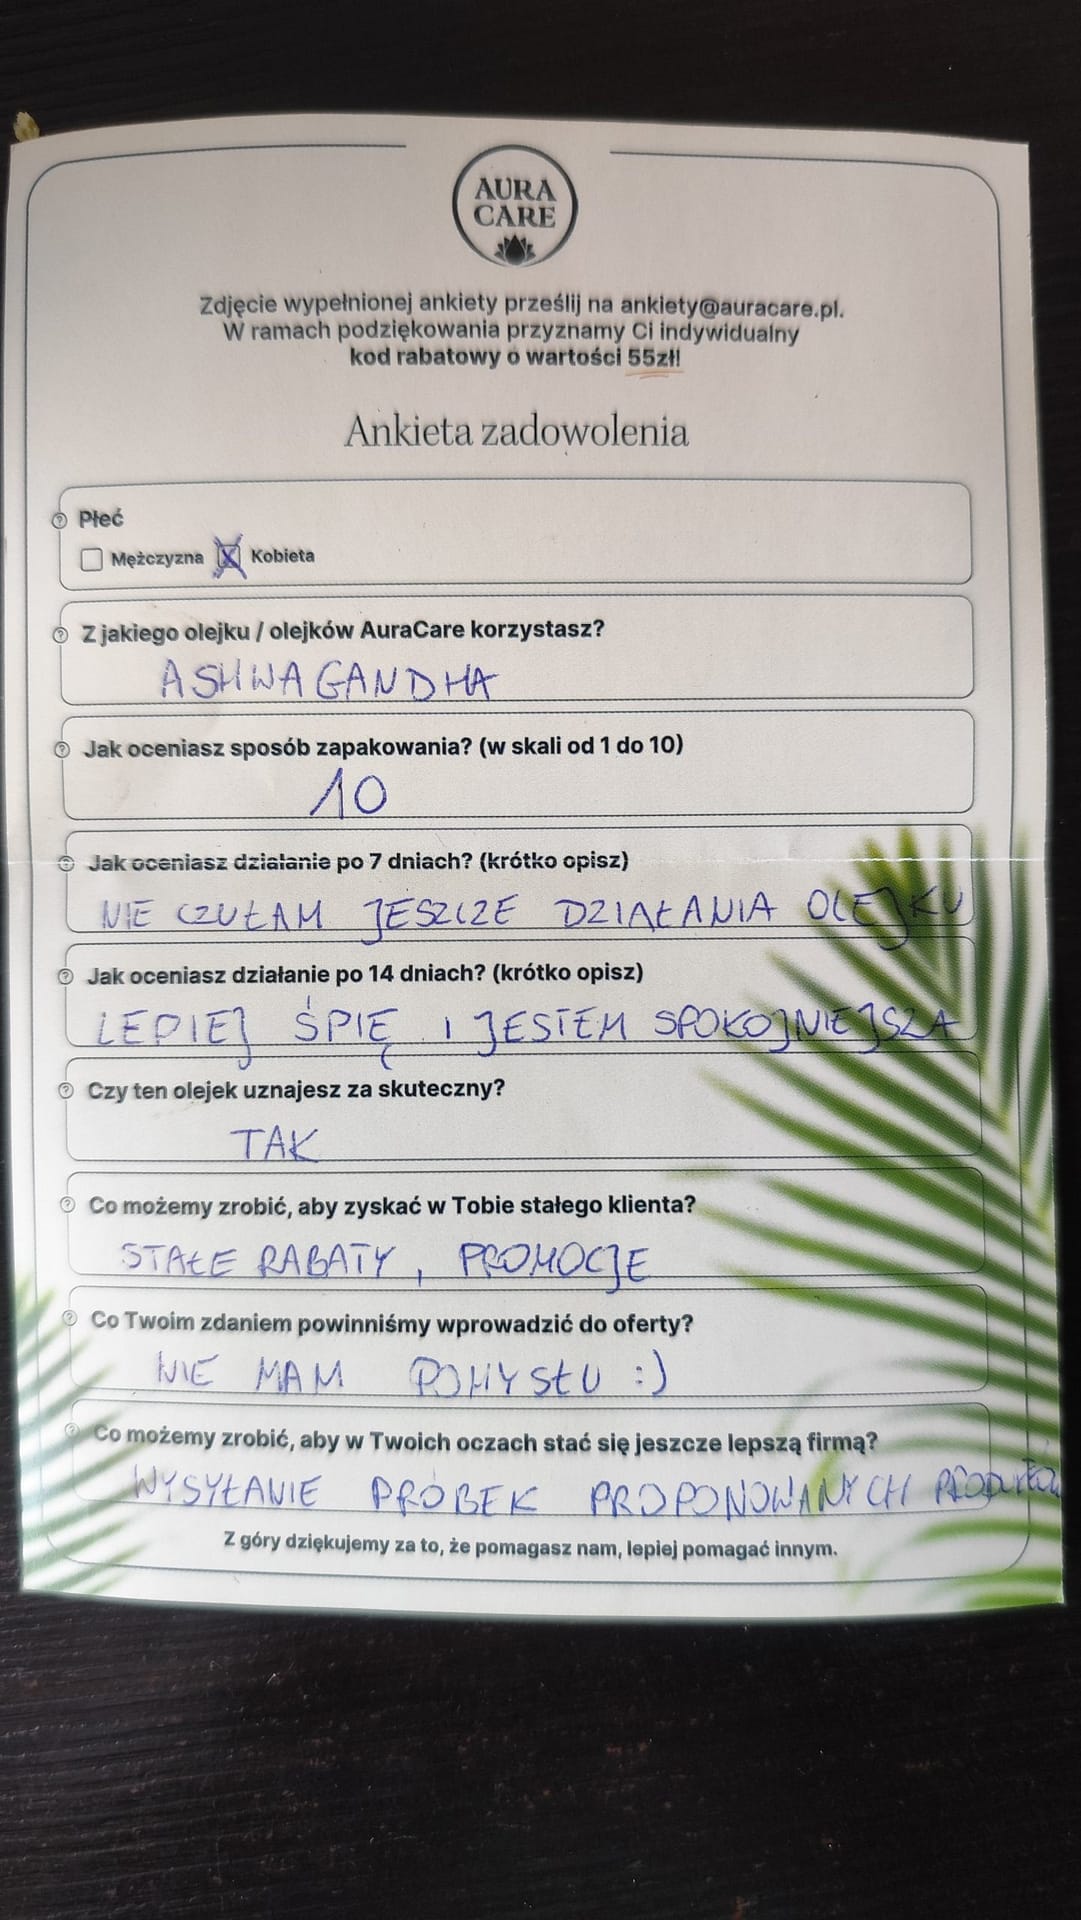 AURA
CARE
Zdjęcie wypełnionej ankiety prześlij na ankiety@auracare.pl.
W ramach podziękowania przyznamy Ci indywidualny
kod rabatowy o wartości 55zł!
Ankieta zadowolenia
Płeć
Mężczyzna X Kobieta
Z jakiego olejku / olejków AuraCare korzystasz?
ASHWAGANDHA
Jak oceniasz sposób zapakowania? (w skali od 1 do 10)
10
Jak oceniasz działanie po 7 dniach? (krótko opisz)
NIE CZUŁAM JESZCZE DZIAŁANIA OLEJKU
Jak oceniasz działanie po 14 dniach? (krótko opisz)
LEPIEJ ŚPIĘ I JESTEM SPOKOJNIEJSZA
Czy ten olejek uznajesz za skuteczny?
TAK
Co możemy zrobić, aby zyskać w Tobie stałego klienta?
STAŁE RABATY, PROMOCJE
Co Twoim zdaniem powinniśmy wprowadzić do oferty?
NIE MAM POMYSŁU :)
Co możemy zrobić, aby w Twoich oczach stać się jeszcze lepszą firmą?
WYSYŁANIE PRÓBEK PROPONOWANYCH PRODUKTÓW
Z góry dziękujemy za to, że pomagasz nam, lepiej pomagać innym.